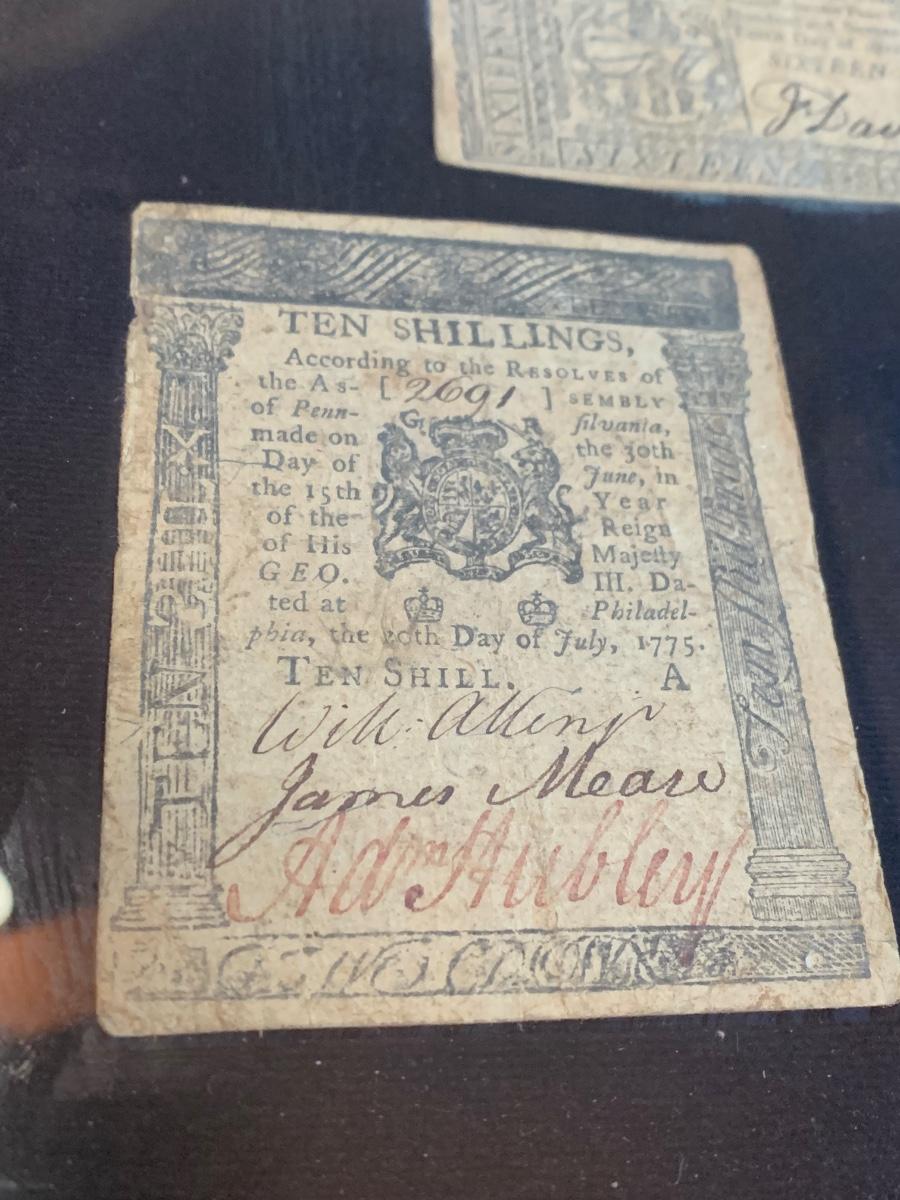 SIXTEEN
J Dav
SIXTEEN
SIXTEEN
TEN SHILLINGS,
According to the RESOLVES of
the As- [ 2691 ] SEMBLY
of Penn- G R silvania,
made on the 30th
Day of June, in
the 15th Year
of the Reign
of His Majesty
GEO. III. Da-
ted at Philadel-
phia, the 20th Day of July, 1775.
TEN SHILL. A
Will: Atting
James Mease
Adm Hubley
TEN SHILX
Ten Shillings